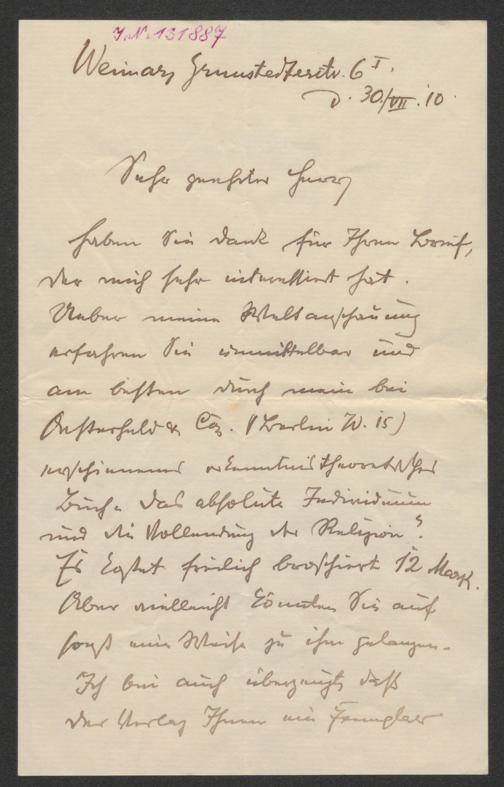 J.N. 131887
Weimar, Grunstedterstr. 6 I.
d. 30/VII. 10.
Sehr geehrter Herr,
haben Sie Dank für Ihren Brief,
der mich sehr interessiert hat.
Ueber meine Weltanschauung
erfahren Sie unmittelbar und
am besten durch mein bei
Oesterheld & Co. (Berlin W. 15)
erschienenes erkenntnistheoretisches
Buch „Das absolute Individuum
und die Vollendung der Religion“.
Es kostet freilich broschiert 12 Mark.
Aber vielleicht könnten Sie auf
sonst eine Weise zu ihm gelangen.
Ich bin auch überzeugt, daß
der Verlag Ihnen ein Exemplar